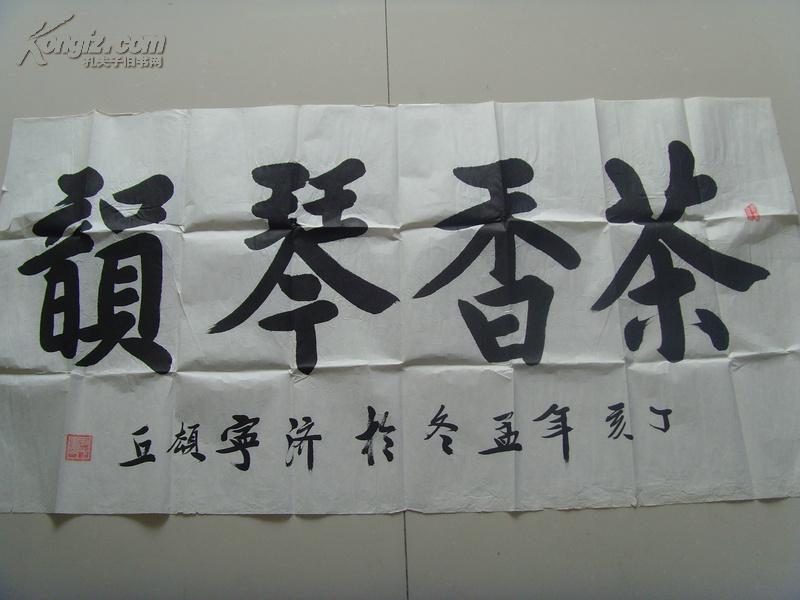 茶香琴韻
丁亥年孟冬於济寧頔丘
Kongfz.com
孔夫子旧书网